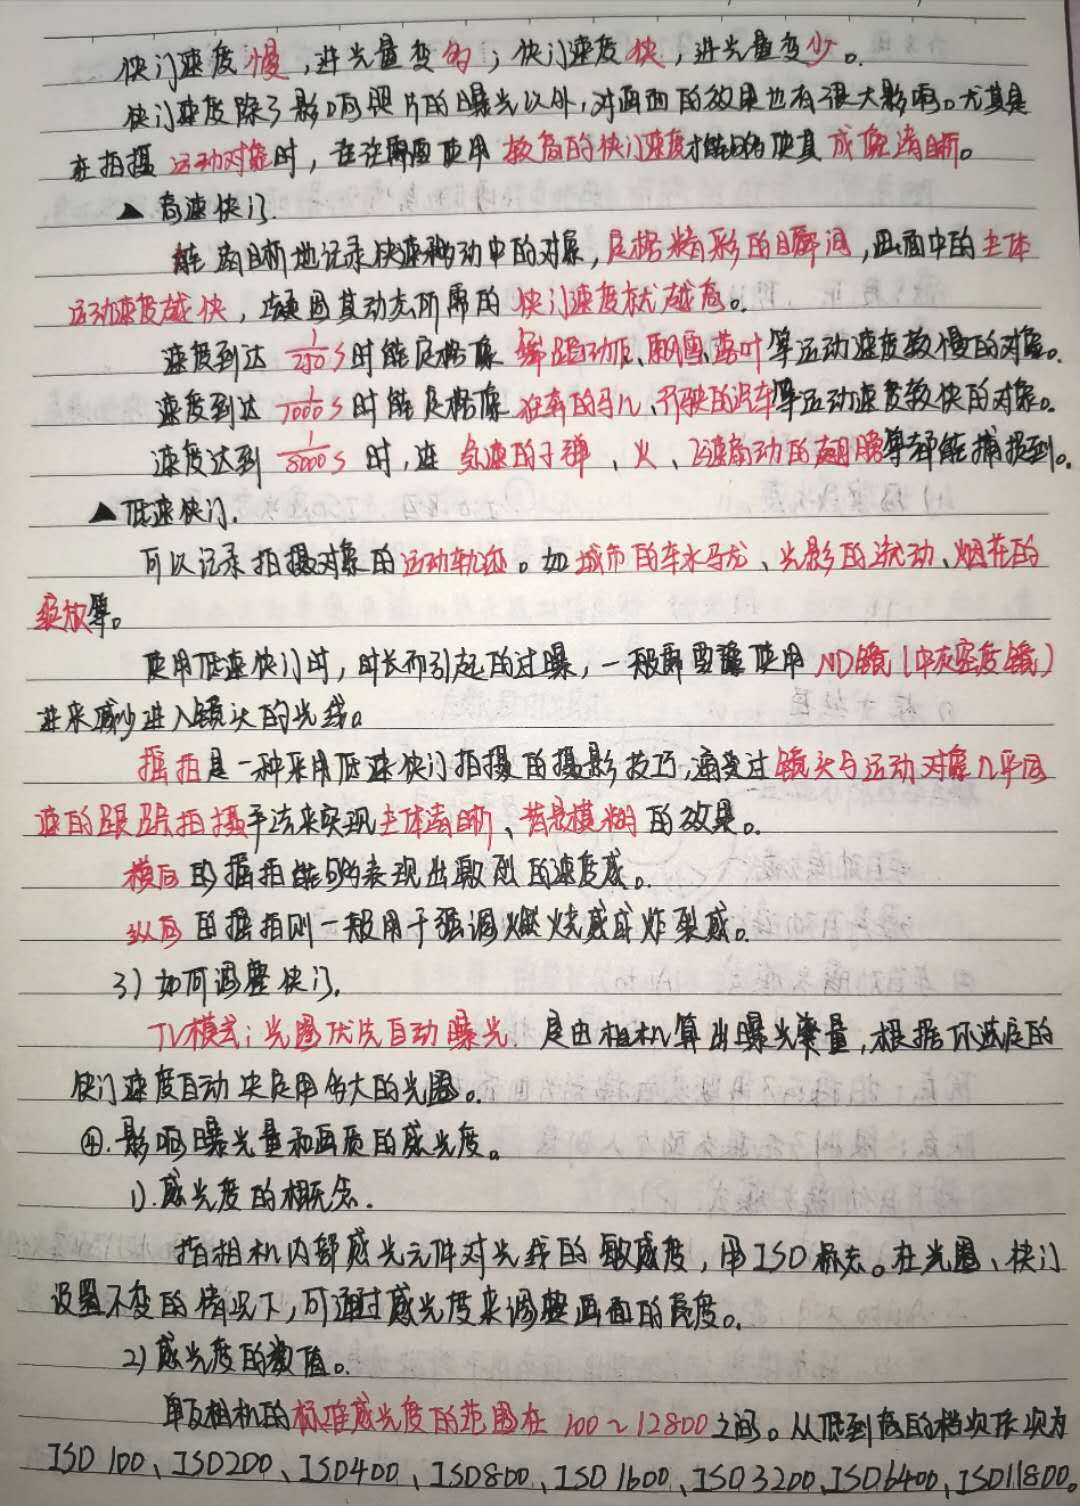 快门速度慢，进光量变多；快门速度快，进光量变少。
快门速度除了影响照片的曝光以外，对画面的效果也有很大影响。尤其是
在拍摄运动对象时，往往需要使用较高的快门速度才能够使其成像清晰。
▲ 高速快门.
能清晰地记录快速移动中的对象，定格精彩的瞬间，画面中的主体
运动速度越快，凝固其动态所需的快门速度就越高。
速度到达 1/250 s 时能定格像 舞蹈动作、雨雪、落叶等运动速度较慢的对象。
速度到达 1/1000 s 时能定格像 狂奔的马儿、行驶的汽车等运动速度较快的对象。
速度达到 1/8000 s 时，连 急速的子弹、火、飞速扇动的翅膀等都能捕捉到。
▲低速快门.
可以记录拍摄对象的运动轨迹。如城市的车水马龙、光影的流动、烟花的
绽放等。
使用低速快门时，时长而引起的过曝，一般需要使用ND镜(中灰密度镜)
进来减少进入镜头的光线。
摇拍是一种采用低速快门拍摄的摄影技巧，通过镜头与运动对象几乎同
速的跟踪拍摄手法来实现主体清晰、背景模糊的效果。
横向的摇拍能够表现出激烈的速度感。
纵向的摇拍则一般用于强调燃烧感或炸裂感。
3) 如何调整快门.
TV模式：光圈优先自动曝光. 是由相机算出曝光量，根据你选定的
快门速度自动决定用多大的光圈。
④.影响曝光量和画质的感光度。
1).感光度的概念.
指相机内部感光元件对光线的敏感度，用ISO标志。在光圈、快门
设置不变的情况下，可通过感光度来调整画面的亮度。
2) 感光度的数值。
单反相机的标准感光度的范围在100~12800之间。从低到高的档次依次为
ISO 100、ISO200、ISO400、ISO800、ISO 1600、ISO 3200、ISO6400、ISO11800。